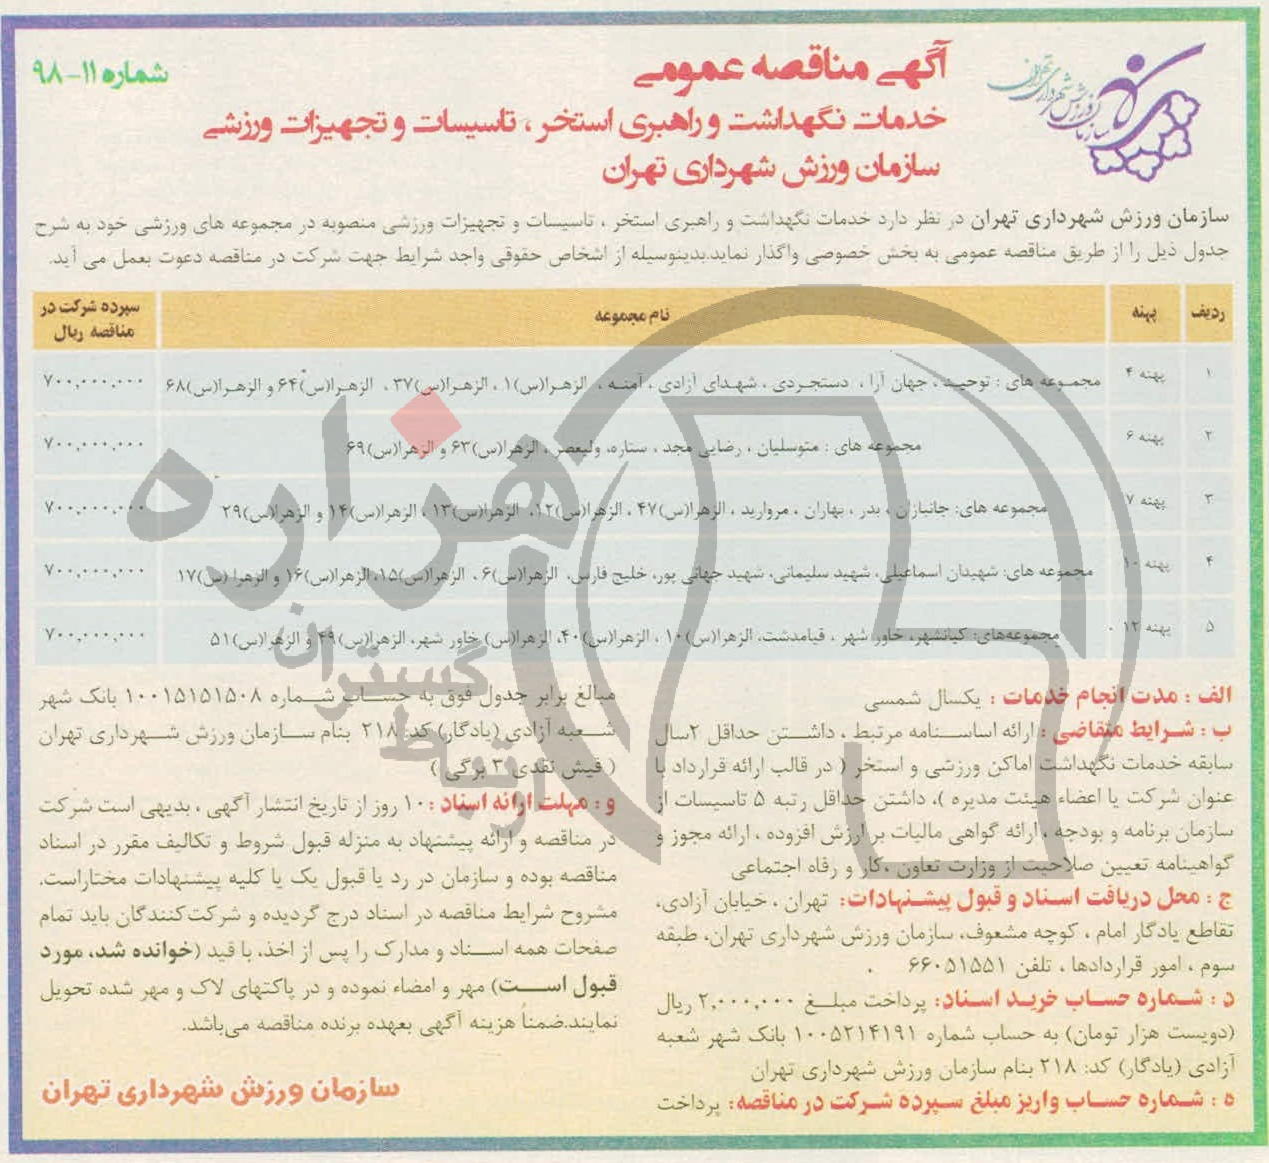 سازمان ورزش شهرداری تهران
آگهی مناقصه عمومی
شماره ۱۱-۹۸
خدمات نگهداشت و راهبری استخر ، تاسیسات و تجهیزات ورزشی
سازمان ورزش شهرداری تهران
سازمان ورزش شهرداری تهران در نظر دارد خدمات نگهداشت و راهبری استخر ، تاسیسات و تجهیزات ورزشی منصوبه در مجموعه های ورزشی خود به شرح
جدول ذیل را از طریق مناقصه عمومی به بخش خصوصی واگذار نماید.بدینوسیله از اشخاص حقوقی واجد شرایط جهت شرکت در مناقصه دعوت بعمل می آید.
ردیف پهنه نام مجموعه سپرده شرکت در مناقصه ریال
۱ پهنه ۴ مجموعه های : توحید ، جهان آرا ، دستجردی ، شهدای آزادی ، آمنه ، الزهرا(س)۱ ، الزهرا(س)۳۷ ، الزهرا(س)۶۴ و الزهرا(س)۶۸ ۷۰۰,۰۰۰,۰۰۰
۲ پهنه ۶ مجموعه های : متوسلیان ، رضایی مجد ، ستاره، ولیعصر ، الزهرا(س)۶۳ و الزهرا(س)۶۹ ۷۰۰,۰۰۰,۰۰۰
۳ پهنه ۷ مجموعه های: جانبازان ، بدر ، بهاران ، مروارید ، الزهرا(س)۴۷ ، الزهرا(س)۱۲، الزهرا(س)۱۳ ، الزهرا(س)۱۴ و الزهرا(س)۲۹ ۷۰۰,۰۰۰,۰۰۰
۴ پهنه ۱۰ مجموعه های: شهیدان اسماعیلی، شهید سلیمانی، شهید جهانی پور، خلیج فارس، الزهرا(س)۶ ، الزهرا(س)۱۵، الزهرا(س)۱۶ و الزهرا (س)۱۷ ۷۰۰,۰۰۰,۰۰۰
۵ پهنه ۱۲ مجموعه‌های: کیانشهر، خاور شهر ، قیامدشت، الزهرا(س)۱۰ ، الزهرا(س)۴۰، الزهرا(س) خاور شهر، الزهرا(س)۴۹ و الزهرا(س)۵۱ ۷۰۰,۰۰۰,۰۰۰
الف : مدت انجام خدمات : یکسال شمسی
ب : شرایط متقاضی : ارائه اساسنامه مرتبط ، داشتن حداقل ۲سال
سابقه خدمات نگهداشت اماکن ورزشی و استخر ( در قالب ارائه قرارداد با
عنوان شرکت یا اعضاء هیئت مدیره )، داشتن حداقل رتبه ۵ تاسیسات از
سازمان برنامه و بودجه ، ارائه گواهی مالیات بر ارزش افزوده ، ارائه مجوز و
گواهینامه تعیین صلاحیت از وزارت تعاون ،کار و رفاه اجتماعی
ج : محل دریافت اسناد و قبول پیشنهادات: تهران ، خیابان آزادی،
تقاطع یادگار امام ، کوچه مشعوف، سازمان ورزش شهرداری تهران، طبقه
سوم ، امور قراردادها ، تلفن ۶۶۰۵۱۵۵۱
د : شماره حساب خرید اسناد: پرداخت مبلغ ۲,۰۰۰,۰۰۰ ریال
(دویست هزار تومان) به حساب شماره ۱۰۰۵۲۱۴۱۹۱ بانک شهر شعبه
آزادی (یادگار) کد: ۲۱۸ بنام سازمان ورزش شهرداری تهران
ه : شماره حساب واریز مبلغ سپرده شرکت در مناقصه: پرداخت
مبالغ برابر جدول فوق به حساب شماره ۱۰۰۱۵۱۵۱۵۰۸ بانک شهر
شعبه آزادی (یادگار) کد: ۲۱۸ بنام سازمان ورزش شهرداری تهران
( فیش نقدی ۳ برگی )
و : مهلت ارائه اسناد :۱۰ روز از تاریخ انتشار آگهی ، بدیهی است شرکت
در مناقصه و ارائه پیشنهاد به منزله قبول شروط و تکالیف مقرر در اسناد
مناقصه بوده و سازمان در رد یا قبول یک یا کلیه پیشنهادات مختاراست.
مشروح شرایط مناقصه در اسناد درج گردیده و شرکت‌کنندگان باید تمام
صفحات همه اسناد و مدارک را پس از اخذ، با قید (خوانده شد، مورد
قبول است) مهر و امضاء نموده و در پاکتهای لاک و مهر شده تحویل
نمایند.ضمناً هزینه آگهی بعهده برنده مناقصه می‌باشد.
سازمان ورزش شهرداری تهران
هزاره
گستران
ارتباط